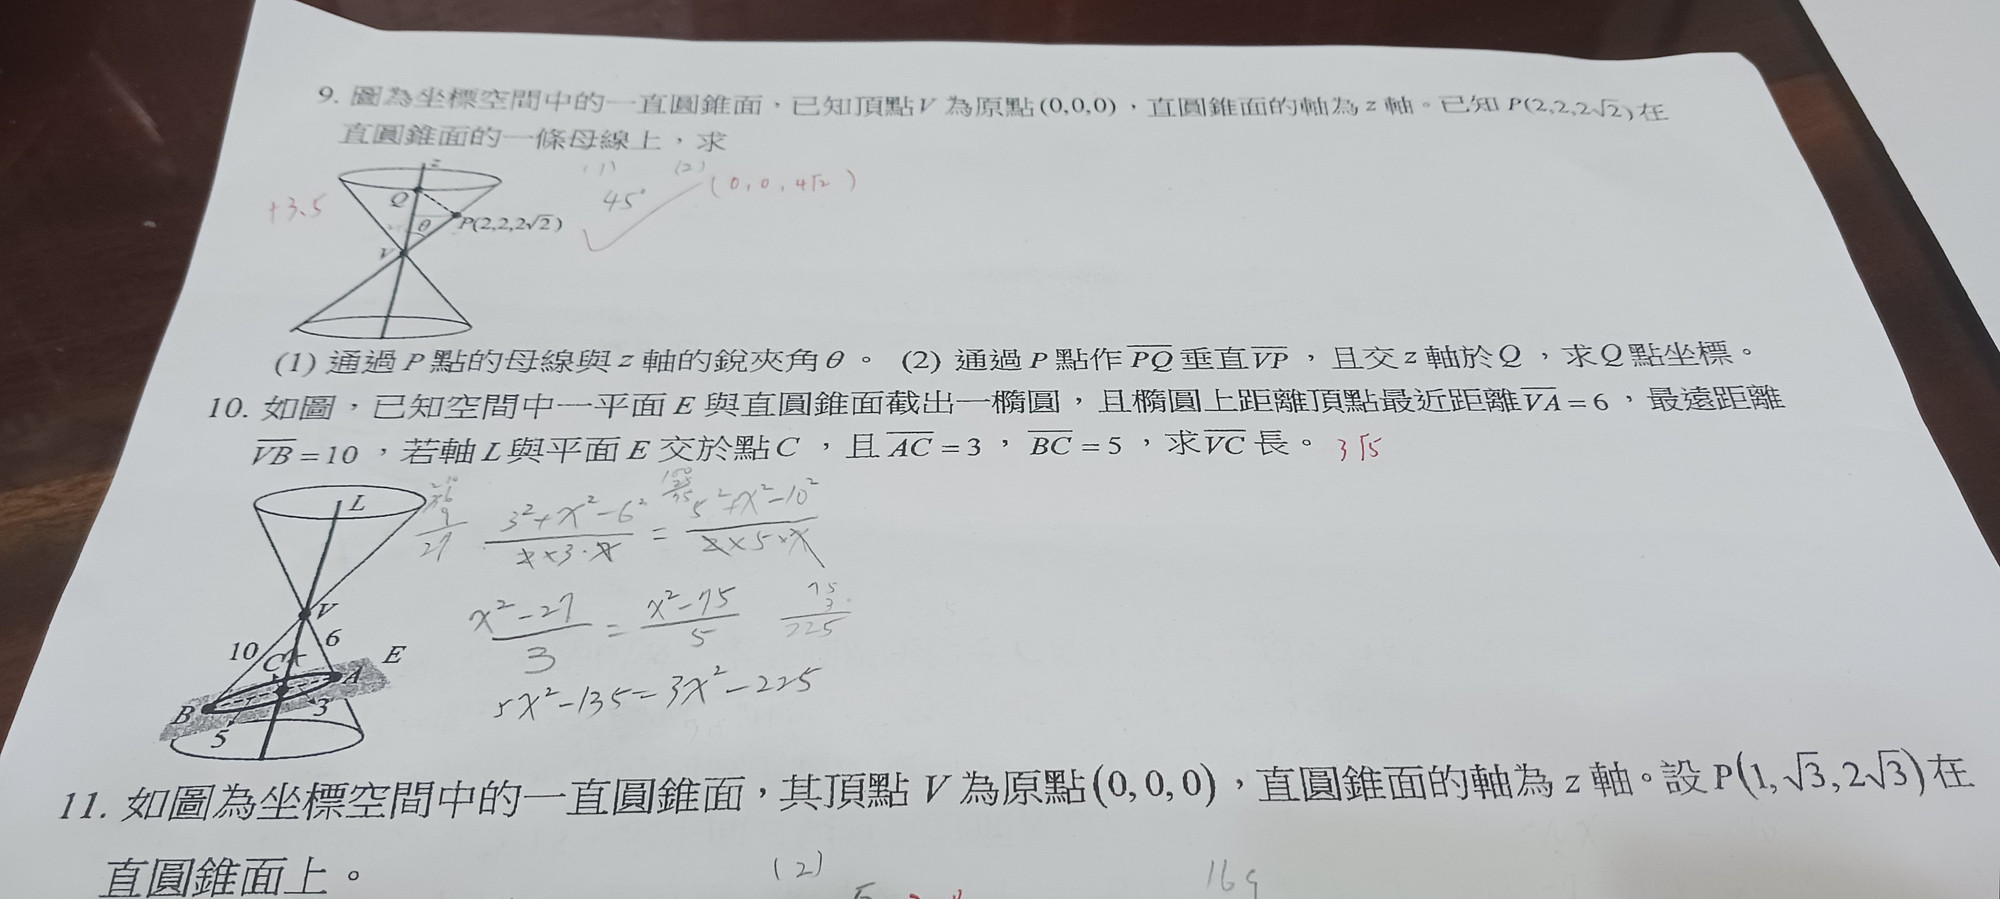 9. 圖為坐標空間中的一直圓錐面，已知頂點V為原點(0,0,0)，直圓錐面的軸為z軸。已知P(2,2,2√2)在
直圓錐面的一條母線上，求
(1) (2)
+3.5 45° (0, 0, 4√2)
z
Q
θ P(2,2,2√2)
V
(1) 通過P點的母線與z軸的銳夾角θ。 (2) 通過P點作PQ垂直VP，且交z軸於Q，求Q點坐標。
10. 如圖，已知空間中一平面E與直圓錐面截出一橢圓，且橢圓上距離頂點最近距離VA=6，最遠距離
VB=10，若軸L與平面E交於點C，且AC=3，BC=5，求VC長。 3√5
L
3²+x²-6² / 2×3·x = 5²+x²-10² / 2×5×x
27
V
x²-27 / 3 = x²-75 / 5
75
3
225
10 6
C E
A
B 3
5
5x²-135=3x²-225
11. 如圖為坐標空間中的一直圓錐面，其頂點V為原點(0,0,0)，直圓錐面的軸為z軸。設P(1,√3,2√3)在
直圓錐面上。
(2)